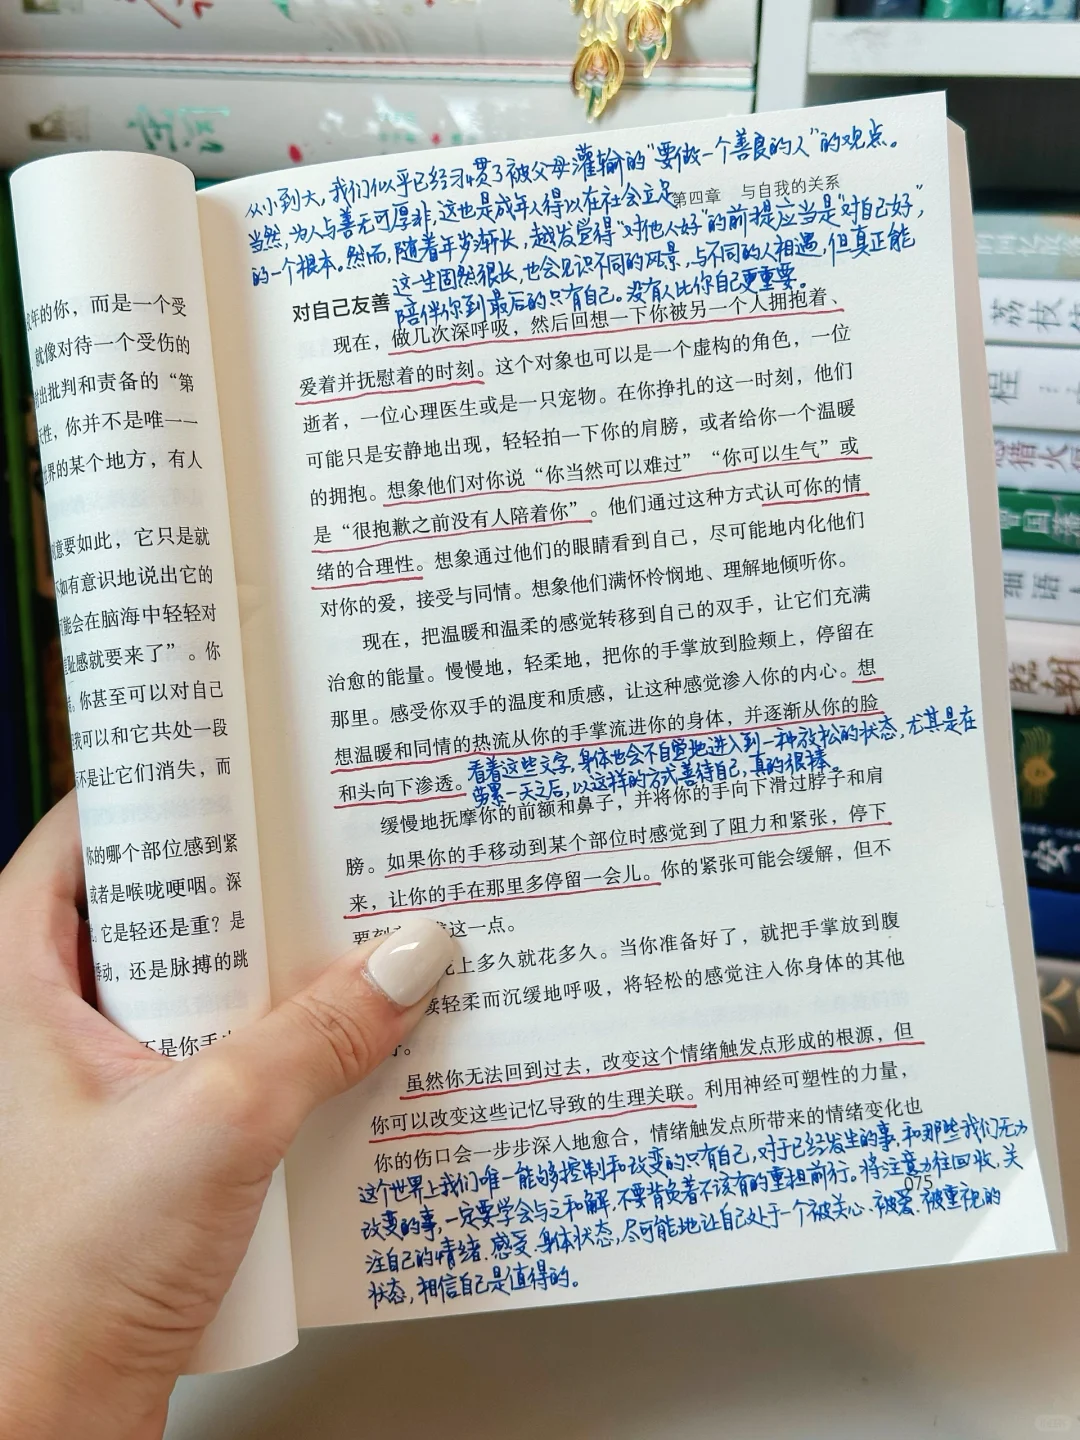 从小到大，我们似乎已经习惯了被父母灌输的“要做一个善良的人”的观点。
第四章 与自我的关系
当然，为人与善无可厚非，这也是成年人得以在社会立足
的一个根本。然而，随着年岁渐长，越发觉得“对他人好”的前提应当是“对自己好”，
这一生固然很长，也会见识不同的风景，与不同的人相遇，但真正能
陪伴你到最后的只有自己。没有人比你自己更重要。
对自己友善
现在，做几次深呼吸，然后回想一下你被另一个人拥抱着、
爱着并抚慰着的时刻。这个对象也可以是一个虚构的角色，一位
逝者，一位心理医生或是一只宠物。在你挣扎的这一时刻，他们
可能只是安静地出现，轻轻拍一下你的肩膀，或者给你一个温暖
的拥抱。想象他们对你说“你当然可以难过”“你可以生气”或
是“很抱歉之前没有人陪着你”。他们通过这种方式认可你的情
绪的合理性。想象通过他们的眼睛看到自己，尽可能地内化他们
对你的爱，接受与同情。想象他们满怀怜悯地、理解地倾听你。
现在，把温暖和温柔的感觉转移到自己的双手，让它们充满
治愈的能量。慢慢地，轻柔地，把你的手掌放到脸颊上，停留在
那里。感受你双手的温度和质感，让这种感觉渗入你的内心。想
想温暖和同情的热流从你的手掌流进你的身体，并逐渐从你的脸
和头向下渗透。
看着这些文字，身体也会不自觉地进入到一种放松的状态，尤其是在
劳累一天之后，以这样的方式善待自己，真的很棒。
缓慢地抚摩你的前额和鼻子，并将你的手向下滑过脖子和肩
膀。如果你的手移动到某个部位时感觉到了阻力和紧张，停下
来，让你的手在那里多停留一会儿。你的紧张可能会缓解，但不
要刻 这一点。
上多久就花多久。当你准备好了，就把手掌放到腹
续轻柔而沉缓地呼吸，将轻松的感觉注入你身体的其他
虽然你无法回到过去，改变这个情绪触发点形成的根源，但
你可以改变这些记忆导致的生理关联。利用神经可塑性的力量，
你的伤口会一步步深入地愈合，情绪触发点所带来的情绪变化也
075
这个世界上我们唯一能够控制和改变的只有自己，对于已经发生的事，和那些我们无力
改变的事，一定要学会与之和解，不要背负着不该有的重担前行。将注意力往回收，关
注自己的情绪、感受、身体状态，尽可能地让自己处于一个被关心、被爱、被重视的
状态，相信自己是值得的。
年的你，而是一个受
就像对待一个受伤的
出批判和责备的“第
性，你并不是唯一一
世界的某个地方，有人
意要如此，它只是就
如有意识地说出它的
能会在脑海中轻轻对
耻感就要来了”。你
你甚至可以对自己
我可以和它共处一段
不是让它们消失，而
你的哪个部位感到紧
或者是喉咙哽咽。深
它是轻还是重？是
动，还是脉搏的跳
不是你手